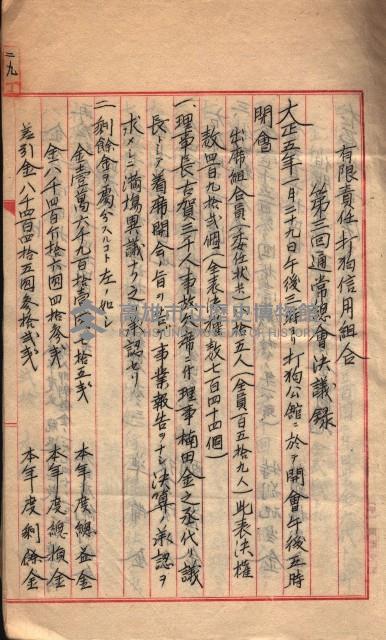 二九
有限責任打狗信用組合
第三回通常總會決議録
大正五年一月二十九日午後三時ヨリ打狗公館ニ於テ開會午後五時
閉會
出席組合員(委任狀共)拾五人(全員一百五十九人)此表決權
數四百九拾貳個(全表決權數七百四十四個)
一、理事長古賀三千人事故欠席ニ付理事楠田金之丞代リ議
長トシテ着席開會ノ旨ヲ告ケ事業報告ヲナシ決算ノ承認ヲ
求メシニ滿場異議ナク之ヲ承認セリ
二、剩餘金ヲ處分スルコト左ノ如シ
金壹萬六千九百拾壹圓七拾五戔 本年度總益金
金八千四百六拾六圓四拾參戔 本年度總損金
差引金八千四百四拾五圓參拾貳戔 本年度剩餘金
高雄市立歷史博物館